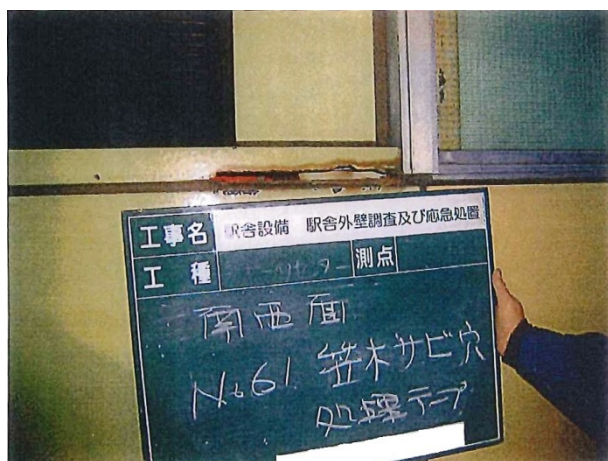 工事名 駅舎設備 駅舎外壁調査及び応急処置
工種 測点
南西面
No61 笠木サビ穴
処理テープ